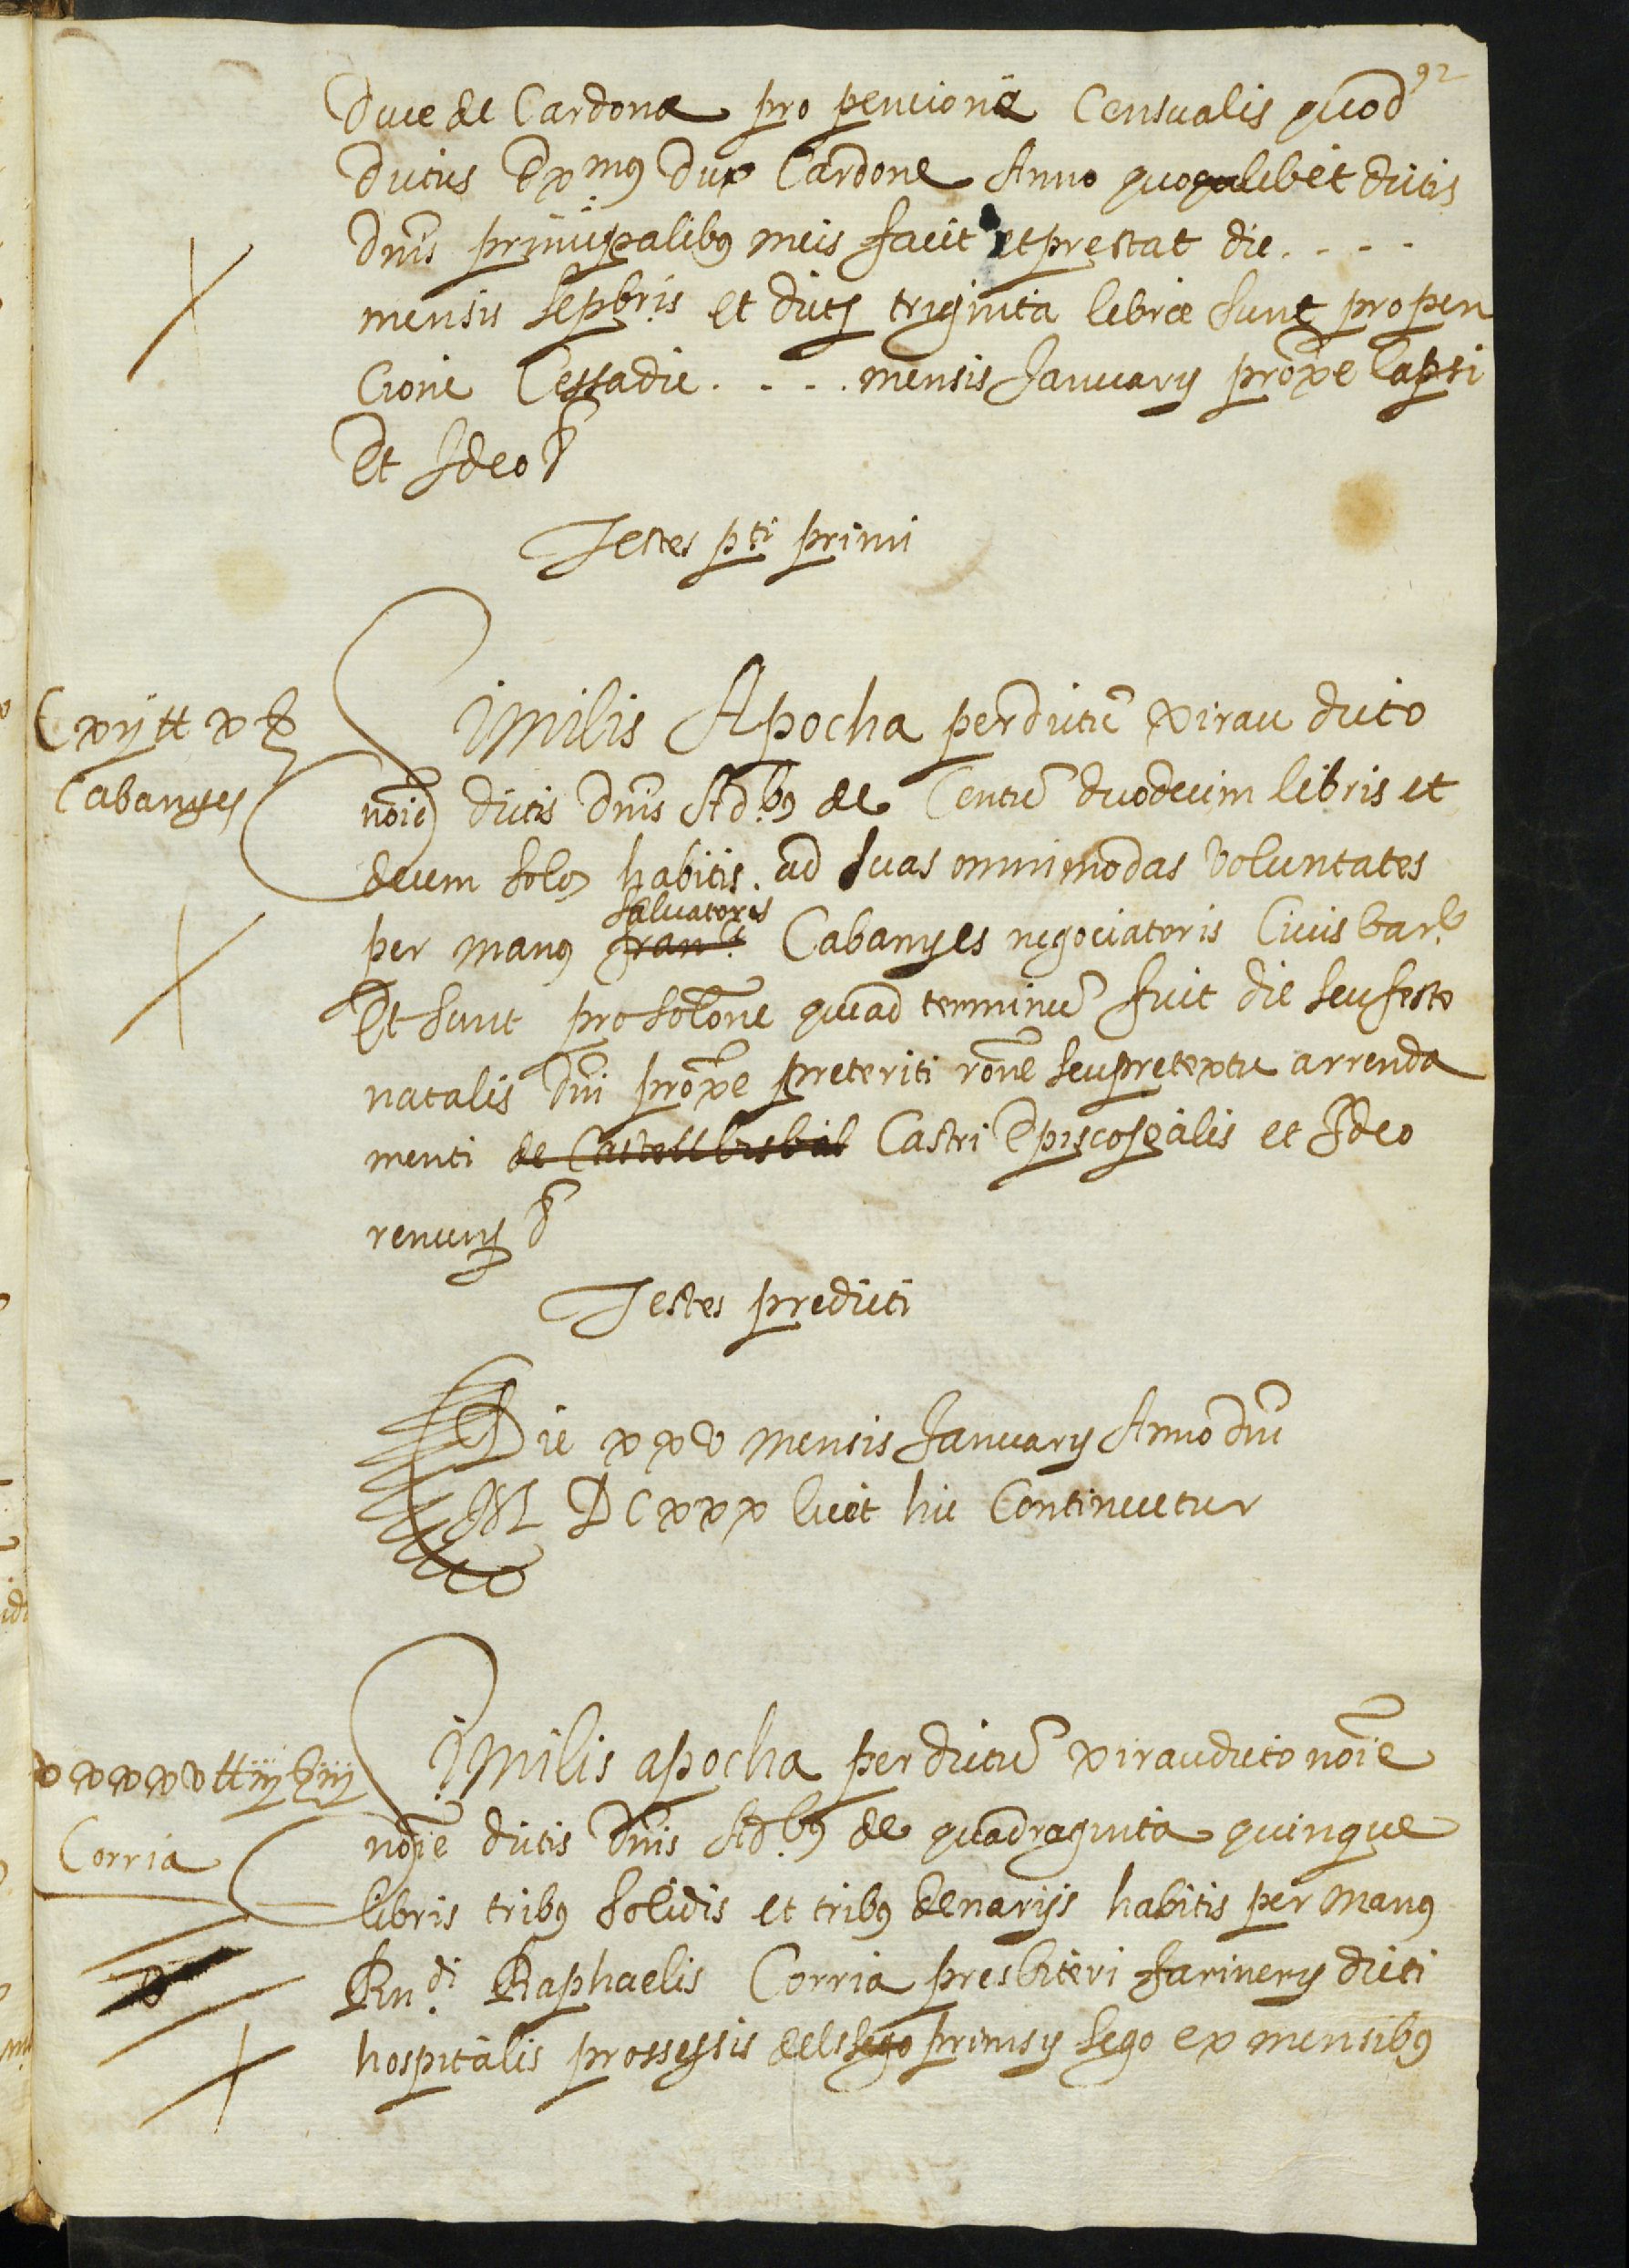 92
Duce de Cardona pro pencione Censualis quod
dictus Exmus dux Cardone Anno quoqualibet dictis
dnis principalibus meis facit et prestat die . . . .
mensis Sepbris et dicte triginta librae sunt pro pen
cione Cessa die . . . . mensis January proxe lapsi
Et Ideo &
Testes pti primi
Cxij tt x ß
Similis Apocha per dictu xirau dicto
Cabanyes
noie dictis dnis Adbus de Centu duodecim libris et
decem solos habitis ad suas omnimodas voluntates
Salvatoris
per manus franci Cabanyes negociatoris Civis barne
Et sunt pro solone qua ad terminu fuit die seu festo
natalis dni proxe preteriti rone seu pretextu arrenda
menti de Castellbisbal Castri Episcopalis et Ideo
renuns &
Testes predicti
Die xxv mensis January Anno dni
M DCxxx licet hic Continuetur
xxxxv tt iij ß iij
Similis apocha per dictu xirau dicto noie
Corria
noie dictis dnis Adbus de quadraginta quinque
libris tribus solidis et tribus denarijs habitis per manus
Rndi Raphaelis Corria presbiteri farinery dicti
hospitalis processis dels sego primsy sego ex mensibus